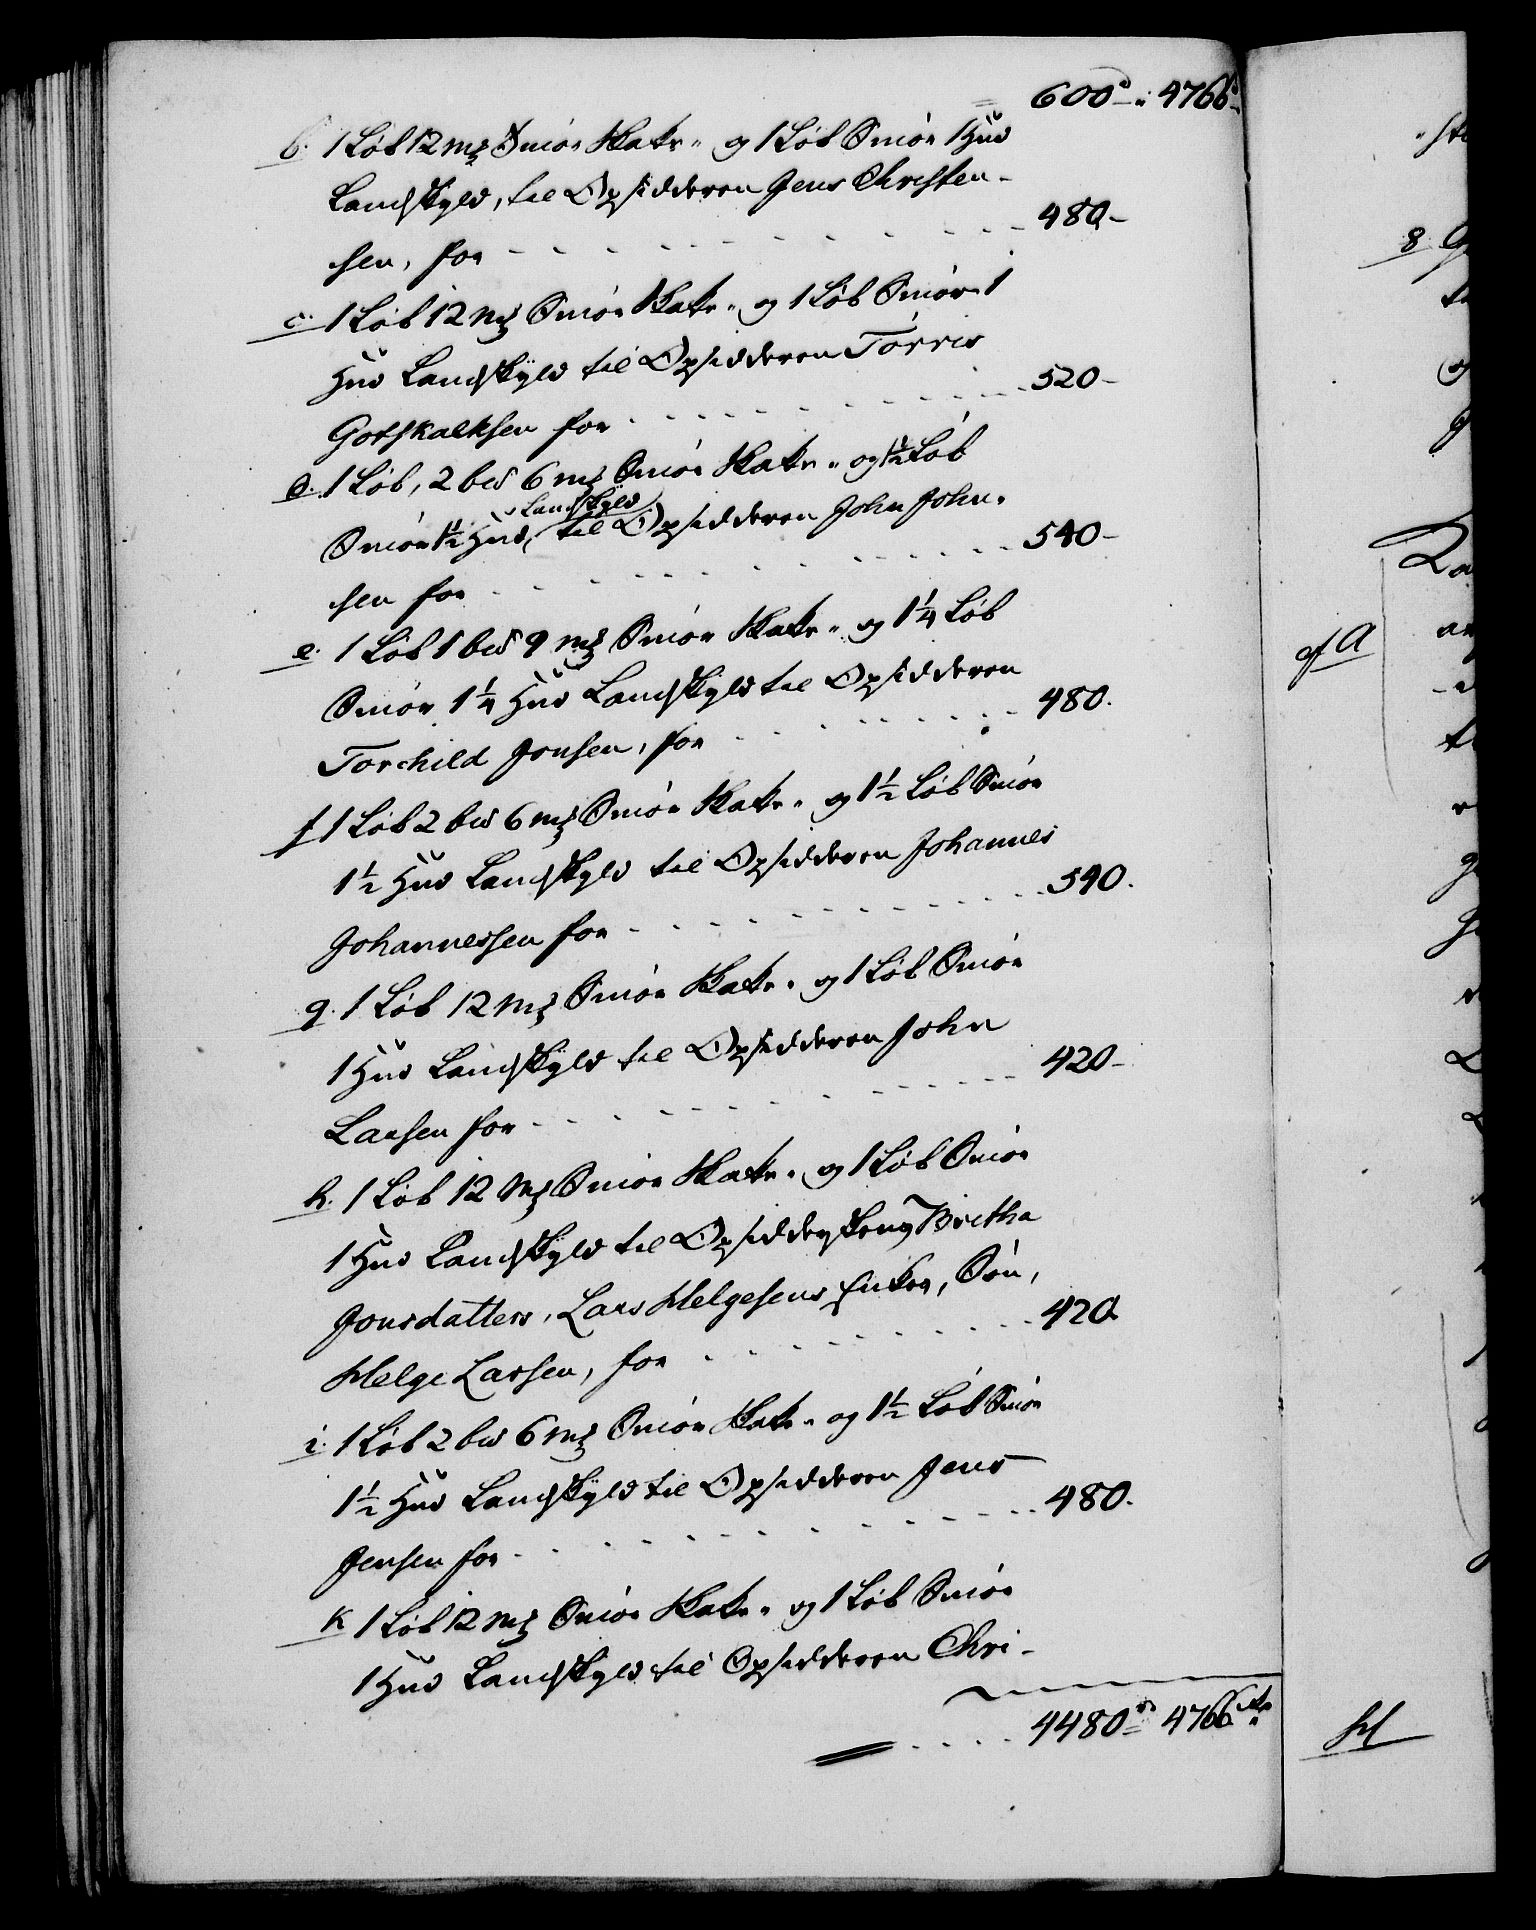 600rd 4766rd
b. 1 Løb 12 mk Smör Skatt, og 1 Løb Smör 1 Hud
Landskyld, til Opsidderen Jens Christen-
sen, for 480-
c. 1 Løb 12 mk Smör Skatt, og 1 Løb Smör 1
Hud Landskyld til Opsidderen Torris
Gotskalksen for 520-
d. 1 Løb, 2 bs 6 mk Smör Skatt, og 1½ Løb
Landskyld
Smör 1½ Hud, til Opsidderen John John-
sen for 540-
e. 1 Løb 1 bs 9 mk Smör Skatt, og 1¼ Løb
Smör 1¼ Hud Landskyld til Opsidderen
Torchild Jonsen, for 480.
f 1 Løb 2 bs 6 mk Smör Skatt, og 1½ Løb Smör
1½ Hud Landskyld til Opsidderen Johannes
Johannessen for 540.
g. 1 Løb 12 mk Smör Skatt, og 1 Løb Smör
1 Hud Landskyld til Opsidderen John
Larsen for 420-
h. 1 Løb 12 mk Smör Skatt, og 1 Løb Smör
1 Hud Landskyld til Opsidderskens Britha
Jonsdatters, Lars Helgesens Enkes, Søn,
Helge Larsen, for 420
i. 1 Løb 2 bs 6 mk Smör Skatt, og 1½ Løb Smör
1½ Hud Landskyld til Opsidderen Jens
Jensen for 480.
k 1 Løb 12 mk Smör Skatt, og 1 Løb Smör
1 Hud Landskyld til Opsidderen Chri-
4480rd 4766rd
8
of A